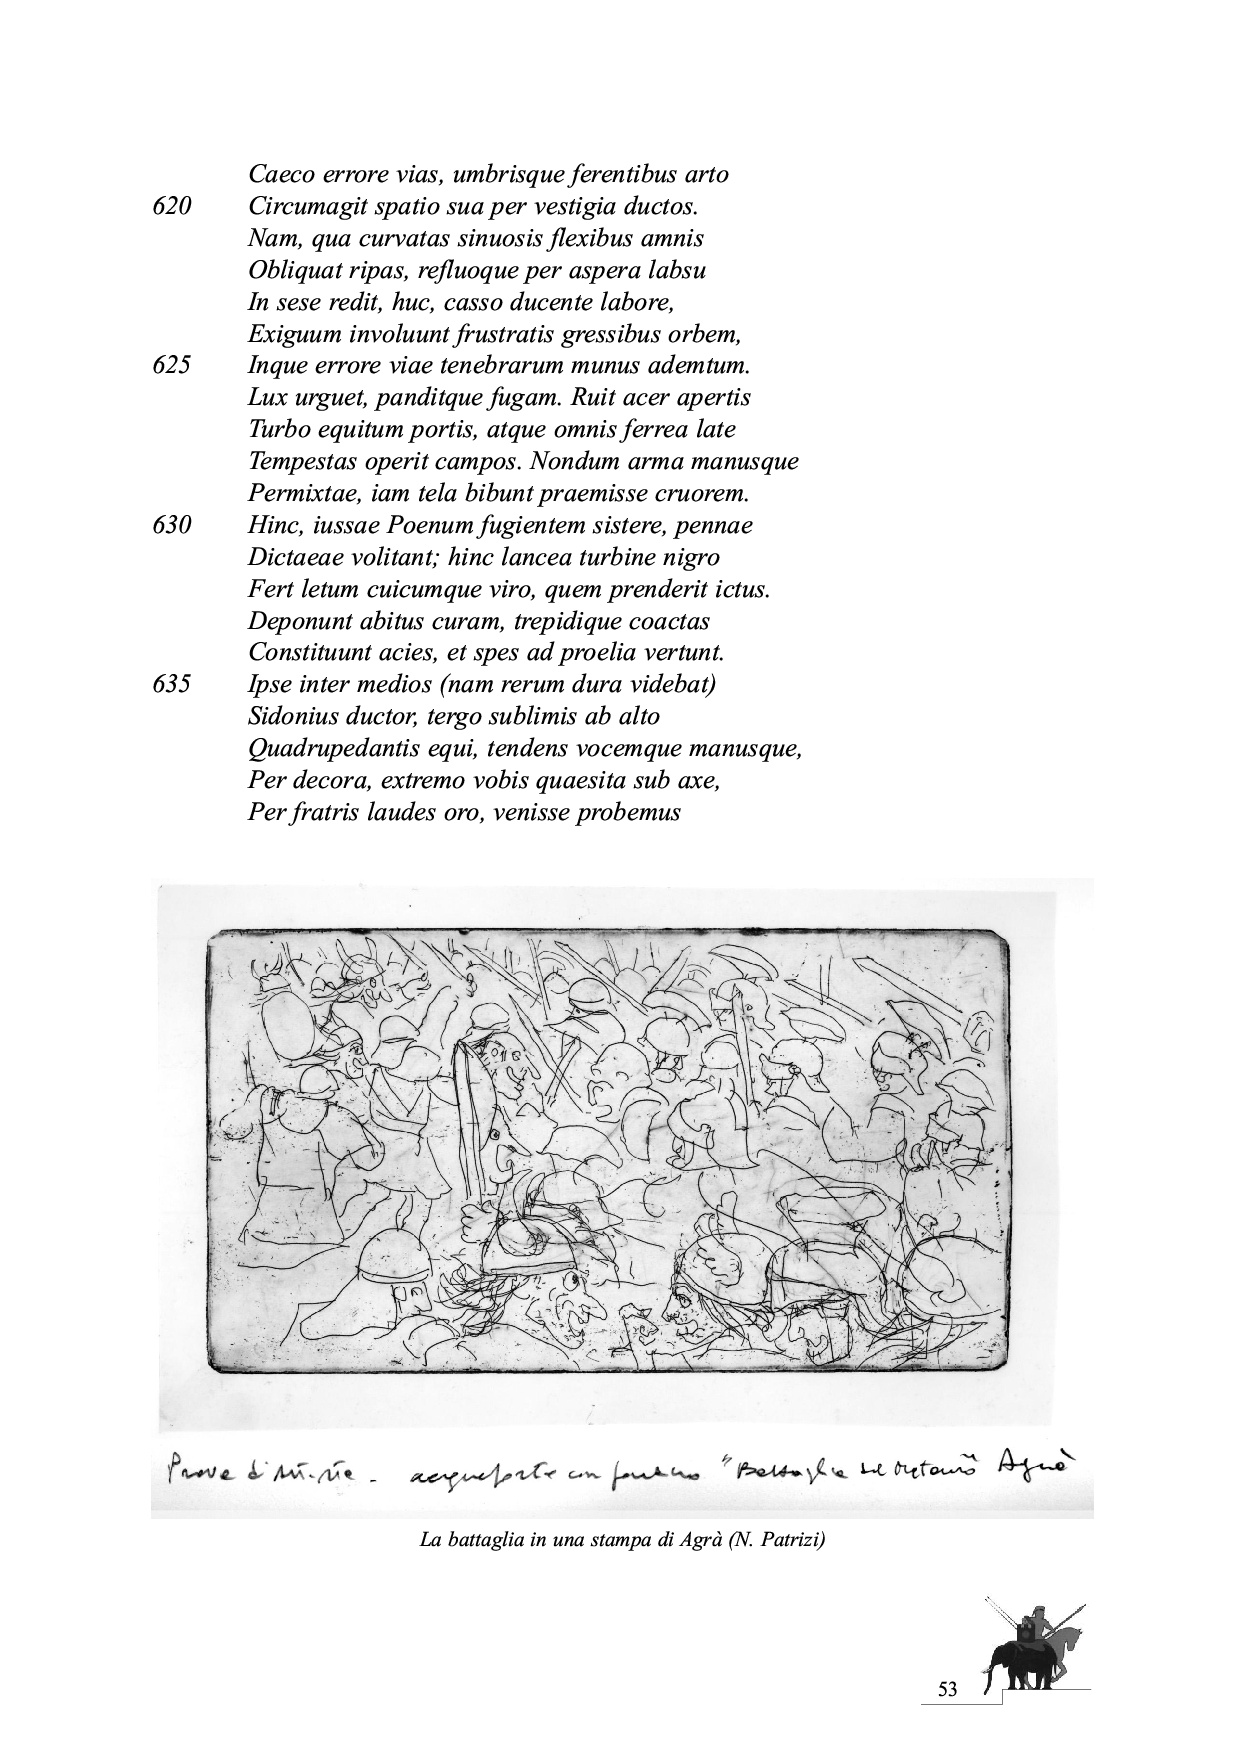 Caeco errore vias, umbrisque ferentibus arto
620 Circumagit spatio sua per vestigia ductos.
Nam, qua curvatas sinuosis flexibus amnis
Obliquat ripas, refluoque per aspera labsu
In sese redit, huc, casso ducente labore,
Exiguum involuunt frustratis gressibus orbem,
625 Inque errore viae tenebrarum munus ademtum.
Lux urguet, panditque fugam. Ruit acer apertis
Turbo equitum portis, atque omnis ferrea late
Tempestas operit campos. Nondum arma manusque
Permixtae, iam tela bibunt praemisse cruorem.
630 Hinc, iussae Poenum fugientem sistere, pennae
Dictaeae volitant; hinc lancea turbine nigro
Fert letum cuicumque viro, quem prenderit ictus.
Deponunt abitus curam, trepidique coactas
Constituunt acies, et spes ad proelia vertunt.
635 Ipse inter medios (nam rerum dura videbat)
Sidonius ductor, tergo sublimis ab alto
Quadrupedantis equi, tendens vocemque manusque,
Per decora, extremo vobis quaesita sub axe,
Per fratris laudes oro, venisse probemus
Prove d' acqueforte con "Battaglia del Metauro Agrà
La battaglia in una stampa di Agrà (N. Patrizi)
53